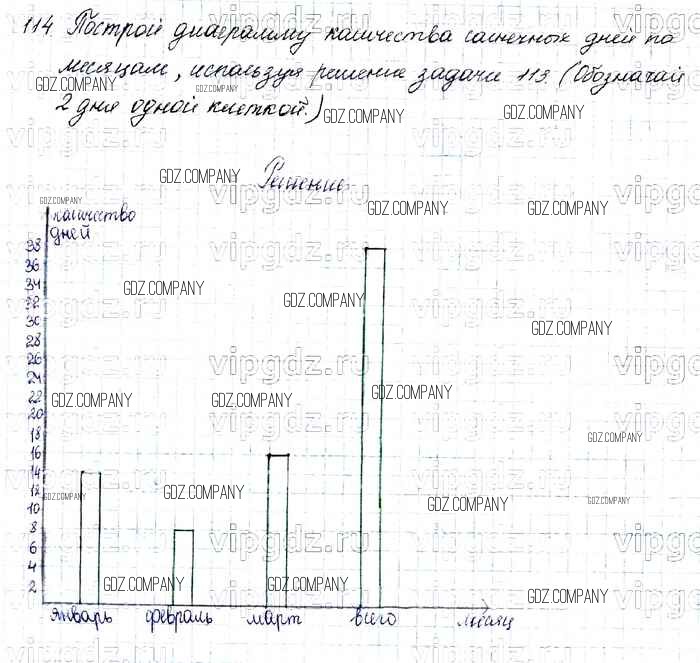 114 Построй диаграмму количества солнечных дней по
месяцам, используя решение задачи 113. (Обозначай
2 дня одной клеткой.)
Решение:
количество
дней
38
36
34
32
30
28
26
24
22
20
18
16
14
12
10
8
6
4
2
январь февраль март всего месяц
GDZ.COMPANY
vipgdz.ru